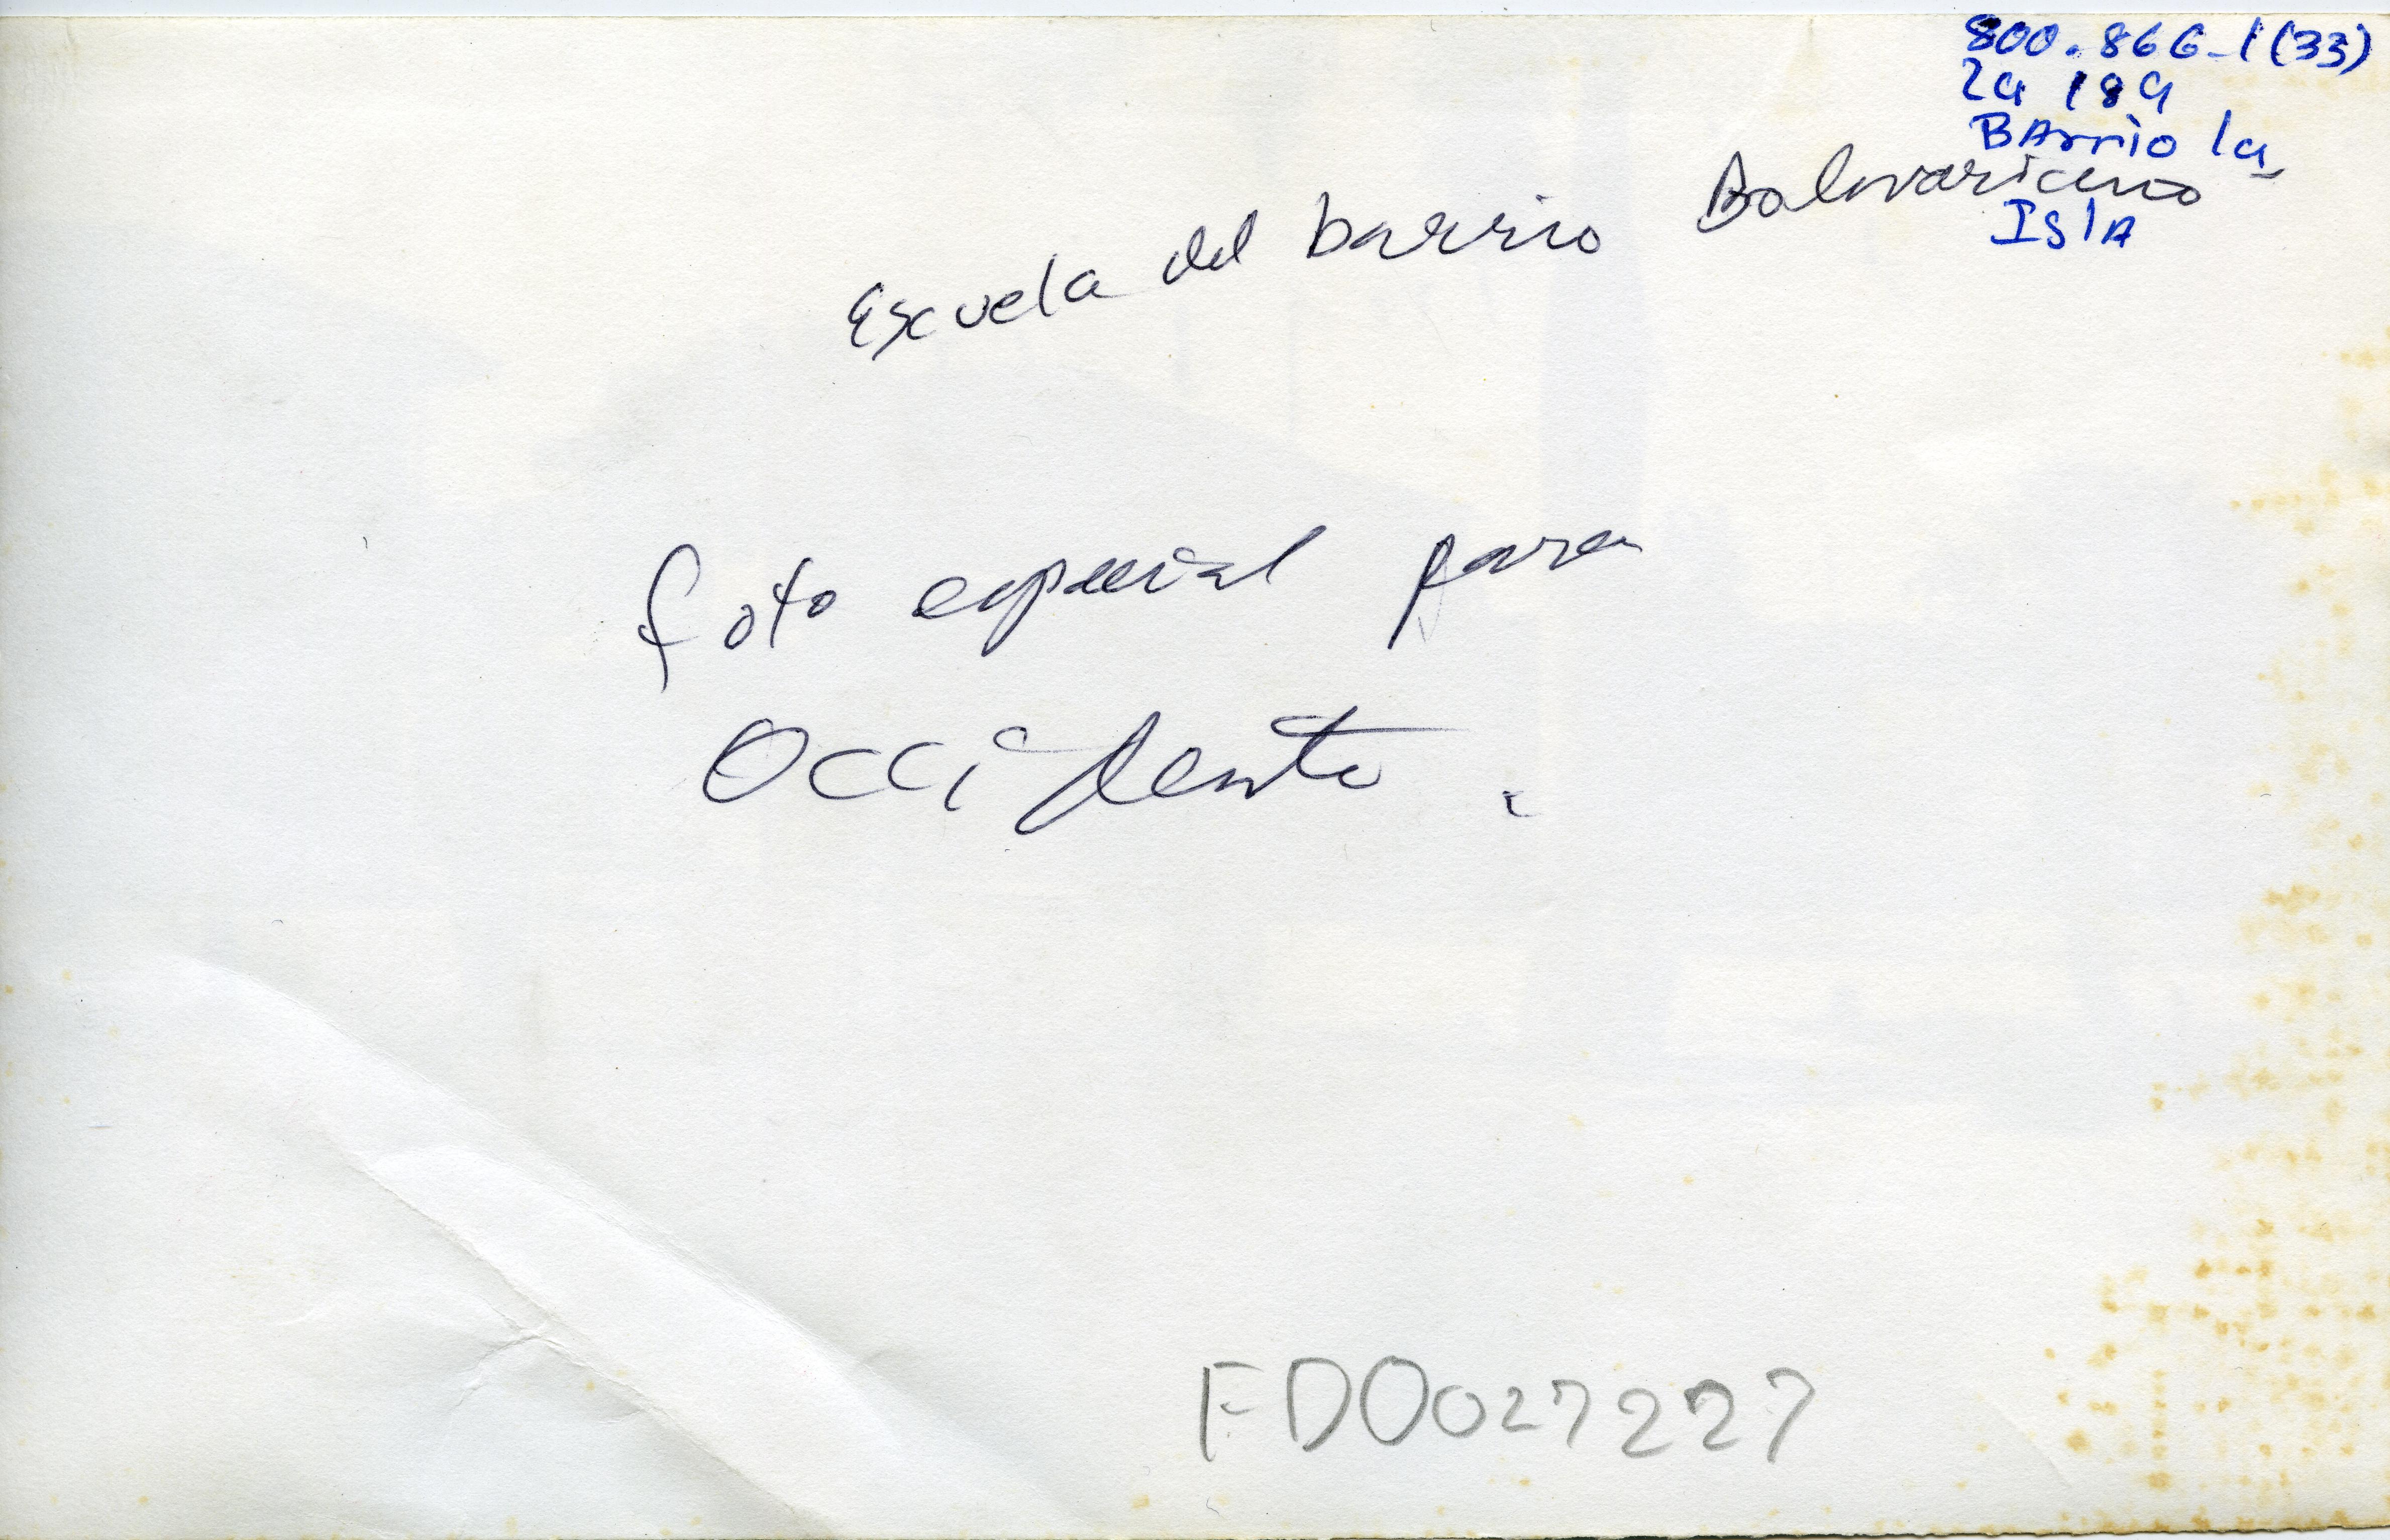 800.866-1(33)
2a 189
BArrio la
IslA
Escuela del barrio Bolivariano
foto especial para
Occidente.
FDO027227